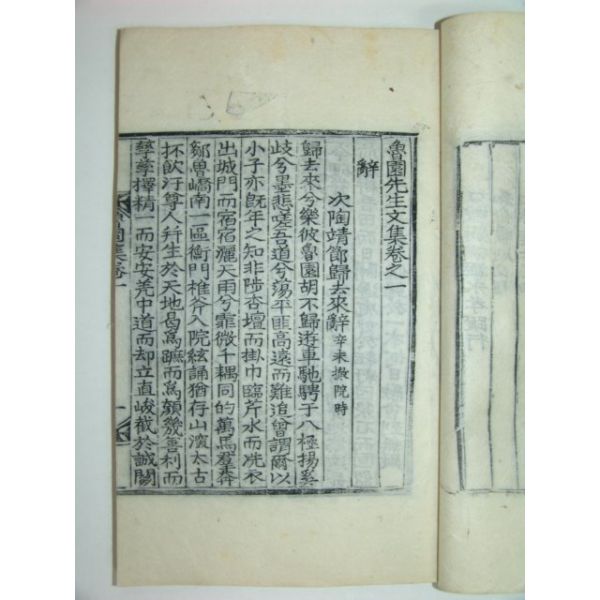 魯園先生文集卷之一
辭
次陶靖節歸去來辭 辛未撤院時
歸去來兮樂彼魯園胡不歸遊車馳騁于八極揚奚
歧兮墨悲嗟吾道兮蕩平匪高遠而難追曾謂爾以
小子亦旣年之知非陟杏壇而掛巾臨芹水而洗衣
出城門而宿宿灑天雨兮霏微千耦同的萬馬羣奔
鄒魯嶠南一區衡門椎斧入院絃誦猶存山濱太古
杯飮汙尊人幷生於天地曷爲蹠而爲顔幾善利而
孳孳擇精一而安安羌中道而却立直峻截於誠關